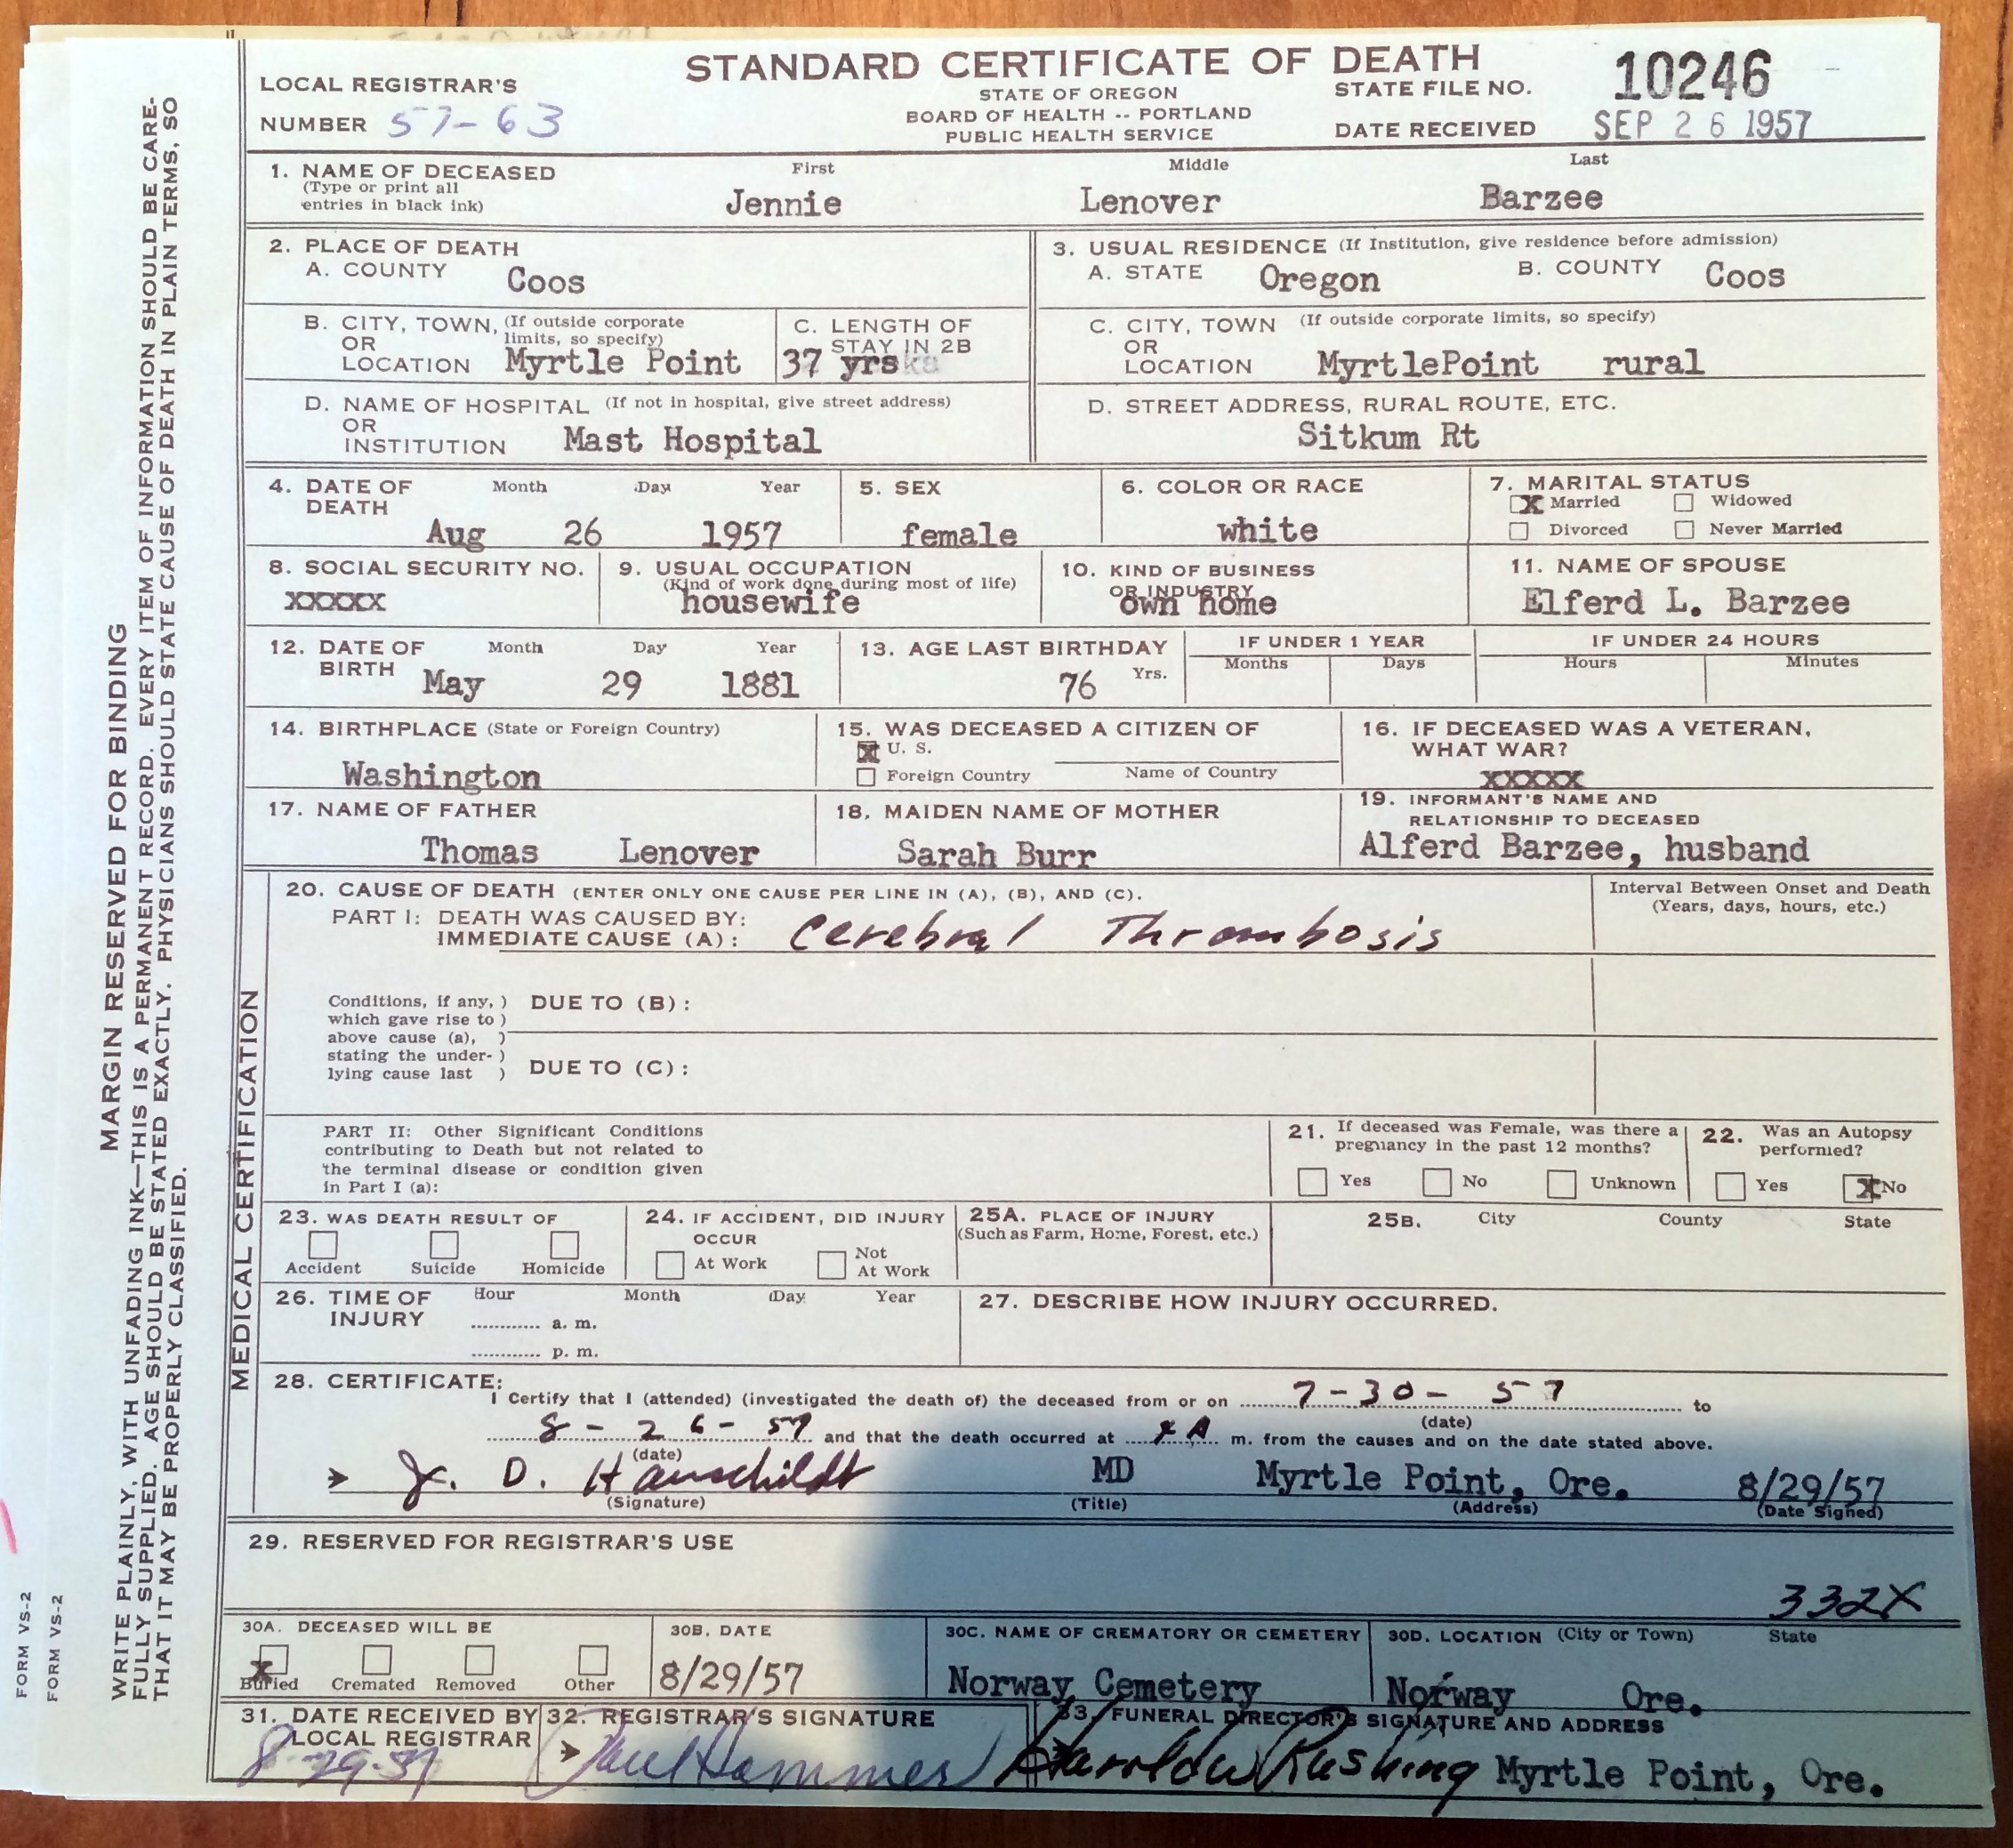 STANDARD CERTIFICATE OF DEATH
STATE OF OREGON
BOARD OF HEALTH -- PORTLAND
PUBLIC HEALTH SERVICE
LOCAL REGISTRAR'S
NUMBER 57-63
STATE FILE NO. 10246
DATE RECEIVED SEP 26 1957
1. NAME OF DECEASED First Middle Last
(Type or print all
entries in black ink) Jennie Lenover Barzee
2. PLACE OF DEATH
A. COUNTY Coos
3. USUAL RESIDENCE (If Institution, give residence before admission)
A. STATE Oregon B. COUNTY Coos
B. CITY, TOWN, (If outside corporate
OR limits, so specify)
LOCATION Myrtle Point
C. LENGTH OF
STAY IN 2B
37 yrs
C. CITY, TOWN (If outside corporate limits, so specify)
OR
LOCATION MyrtlePoint rural
D. NAME OF HOSPITAL (If not in hospital, give street address)
OR
INSTITUTION Mast Hospital
D. STREET ADDRESS, RURAL ROUTE, ETC.
Sitkum Rt
4. DATE OF Month Day Year
DEATH
Aug 26 1957
5. SEX
female
6. COLOR OR RACE
white
7. MARITAL STATUS
X Married Widowed
Divorced Never Married
8. SOCIAL SECURITY NO.
XXXXX
9. USUAL OCCUPATION
(Kind of work done during most of life)
housewife
10. KIND OF BUSINESS
OR INDUSTRY
own home
11. NAME OF SPOUSE
Elferd L. Barzee
12. DATE OF Month Day Year
BIRTH May 29 1881
13. AGE LAST BIRTHDAY
76 Yrs.
IF UNDER 1 YEAR
Months Days
IF UNDER 24 HOURS
Hours Minutes
14. BIRTHPLACE (State or Foreign Country)
Washington
15. WAS DECEASED A CITIZEN OF
X U. S.
Foreign Country Name of Country
16. IF DECEASED WAS A VETERAN,
WHAT WAR?
XXXXX
17. NAME OF FATHER
Thomas Lenover
18. MAIDEN NAME OF MOTHER
Sarah Burr
19. INFORMANT'S NAME AND
RELATIONSHIP TO DECEASED
Alferd Barzee, husband
MEDICAL CERTIFICATION
20. CAUSE OF DEATH (ENTER ONLY ONE CAUSE PER LINE IN (A), (B), AND (C).
PART I: DEATH WAS CAUSED BY:
IMMEDIATE CAUSE (A): Cerebral Thrombosis
Interval Between Onset and Death
(Years, days, hours, etc.)
Conditions, if any, )
which gave rise to )
above cause (a), )
stating the under- )
lying cause last )
DUE TO (B):
DUE TO (C):
PART II: Other Significant Conditions
contributing to Death but not related to
the terminal disease or condition given
in Part I (a):
21. If deceased was Female, was there a
pregnancy in the past 12 months?
Yes No Unknown
22. Was an Autopsy
performed?
Yes X No
23. WAS DEATH RESULT OF
Accident Suicide Homicide
24. IF ACCIDENT, DID INJURY
OCCUR
At Work Not
At Work
25A. PLACE OF INJURY
(Such as Farm, Home, Forest, etc.)
25B. City County State
26. TIME OF Hour Month Day Year
INJURY ............ a. m.
............ p. m.
27. DESCRIBE HOW INJURY OCCURRED.
28. CERTIFICATE:
I Certify that I (attended) (investigated the death of) the deceased from or on 7-30-57 to
(date)
8-26-57 and that the death occurred at A m. from the causes and on the date stated above.
(date)
J. D. Hauschildt MD Myrtle Point, Ore. 8/29/57
(Signature) (Title) (Address) (Date Signed)
29. RESERVED FOR REGISTRAR'S USE
332X
30A. DECEASED WILL BE
X Buried Cremated Removed Other
30B. DATE
8/29/57
30C. NAME OF CREMATORY OR CEMETERY
Norway Cemetery
30D. LOCATION (City or Town) State
Norway Ore.
31. DATE RECEIVED BY
LOCAL REGISTRAR
8-29-57
32. REGISTRAR'S SIGNATURE
Paul Hammer
33. FUNERAL DIRECTOR'S SIGNATURE AND ADDRESS
Harold W Rushing Myrtle Point, Ore.
MARGIN RESERVED FOR BINDING
WRITE PLAINLY, WITH UNFADING INK—THIS IS A PERMANENT RECORD. EVERY ITEM OF INFORMATION SHOULD BE CARE-
FULLY SUPPLIED. AGE SHOULD BE STATED EXACTLY. PHYSICIANS SHOULD STATE CAUSE OF DEATH IN PLAIN TERMS, SO
THAT IT MAY BE PROPERLY CLASSIFIED.
FORM VS-2
FORM VS-2